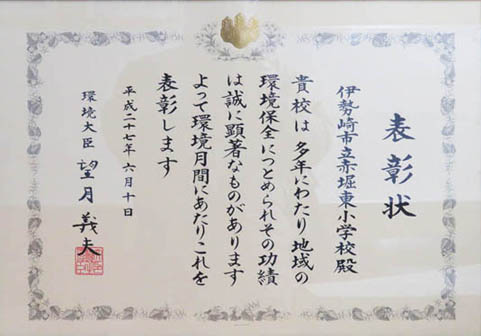 表彰状
伊勢崎市立赤堀東小学校殿
貴校は多年にわたり地域の
環境保全につとめられその功績
は誠に顕著なものがあります
よって環境月間にあたりこれを
表彰します
平成二十七年六月十日
環境大臣 望月義夫